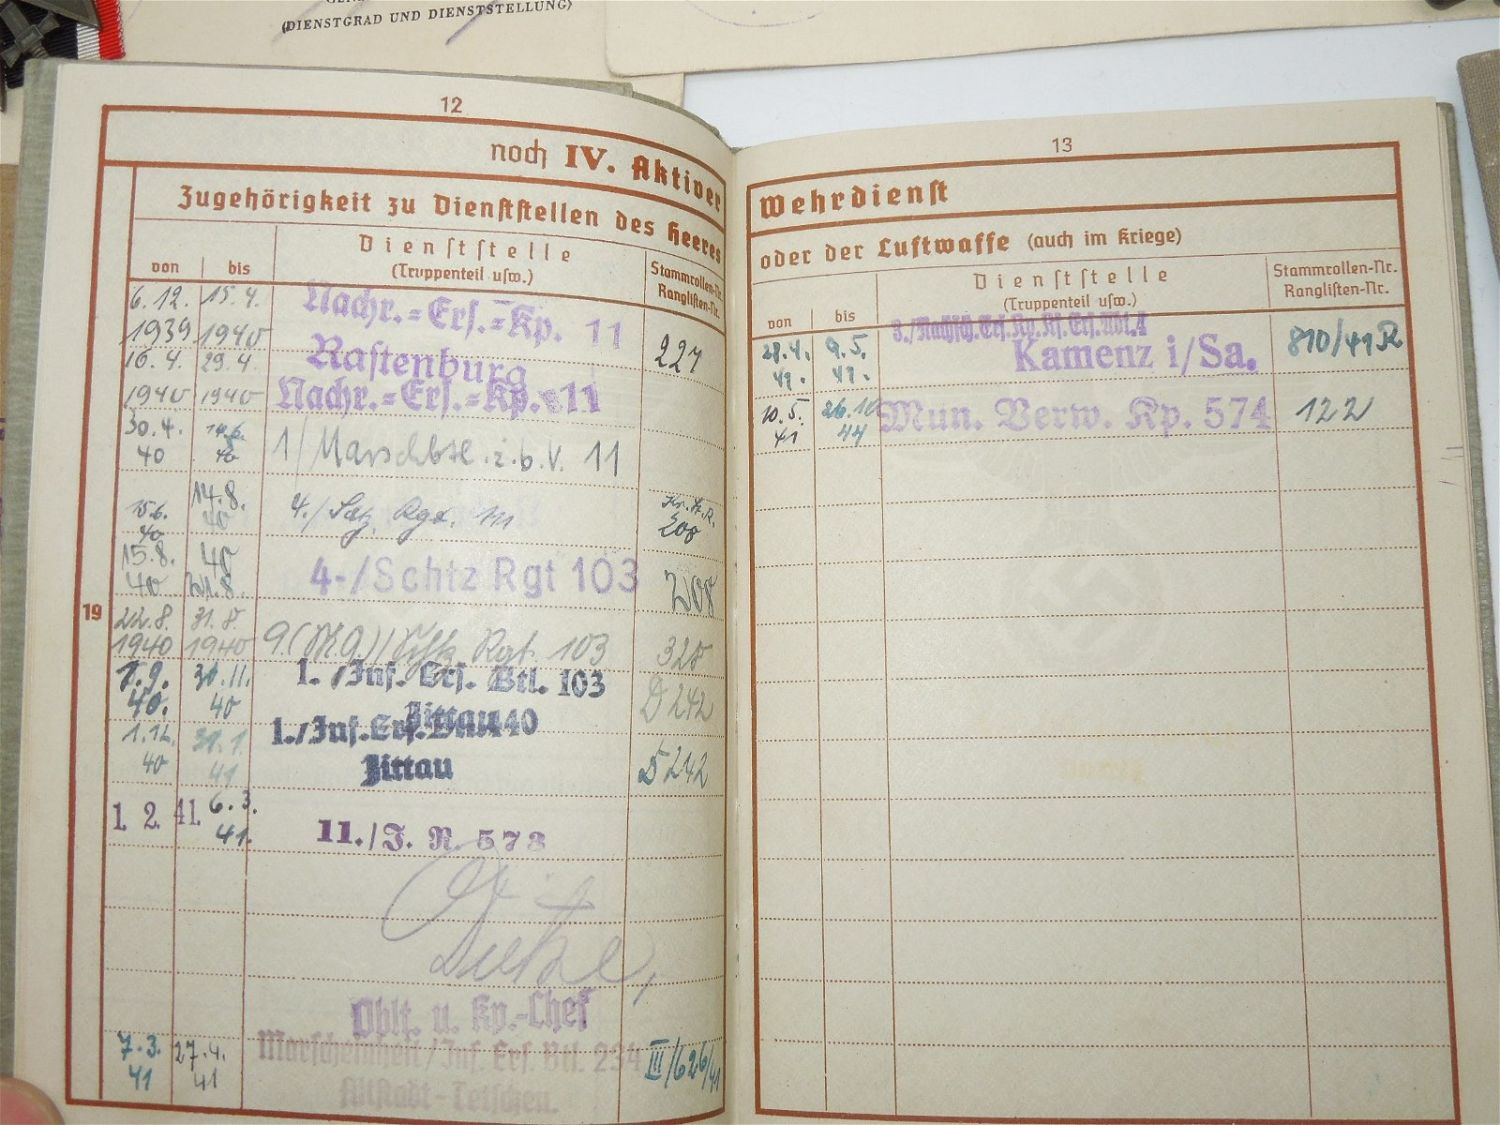 (DIENSTGRAD UND DIENSTSTELLUNG)
12
noch IV. Aktiver
Zugehörigkeit zu Dienststellen des Heeres
von
bis
Dienststelle
(Truppenteil usw.)
Stammrollen-Nr.
Ranglisten-Nr.
6.12. 15.4. Nachr.=Ers.=Kp. 11
1939 1940 Rastenburg 227
16.4. 29.4. Nachr.=Ers.=Kp. 11
1940 1940
30.4. 14.6. 1/Marschbtl. z.b.V. 11
40 40
15.6. 14.8. 4./Sch. Rgt. 111 200
40 40
15.8. 40 4-/Schtz Rgt 103
40 21.8.
19
22.8. 31.8. 9.(M.G.)/Schtz Rgt. 103 328
1940 1940
1.9. 30.11. 1./Inf. Ers. Btl. 103 D 242
40. 40 Zittau
1.12. 31.1. 1./Inf.Ers.Btl. 40 D 242
40 41 Zittau
1. 2. 41. 6.3. 11./I. R. 573
41.
Oblt. u. Kp.-Chef
7.3. 27.4. Marscheinheit/Inf. Ers. Btl. 234 III/626/41
41 41 Altstadt-Tetschen.
13
Wehrdienst
oder der Luftwaffe (auch im Kriege)
von
bis
Dienststelle
(Truppenteil usw.)
Stammrollen-Nr.
Ranglisten-Nr.
28.4. 9.5. 3./Nachsch.Ers.Kp.Kf.Ers.Abt.4 810/41 R
41. 41. Kamenz i/Sa.
10.5. 26.10 Mun. Verw. Kp. 574 122
41 44